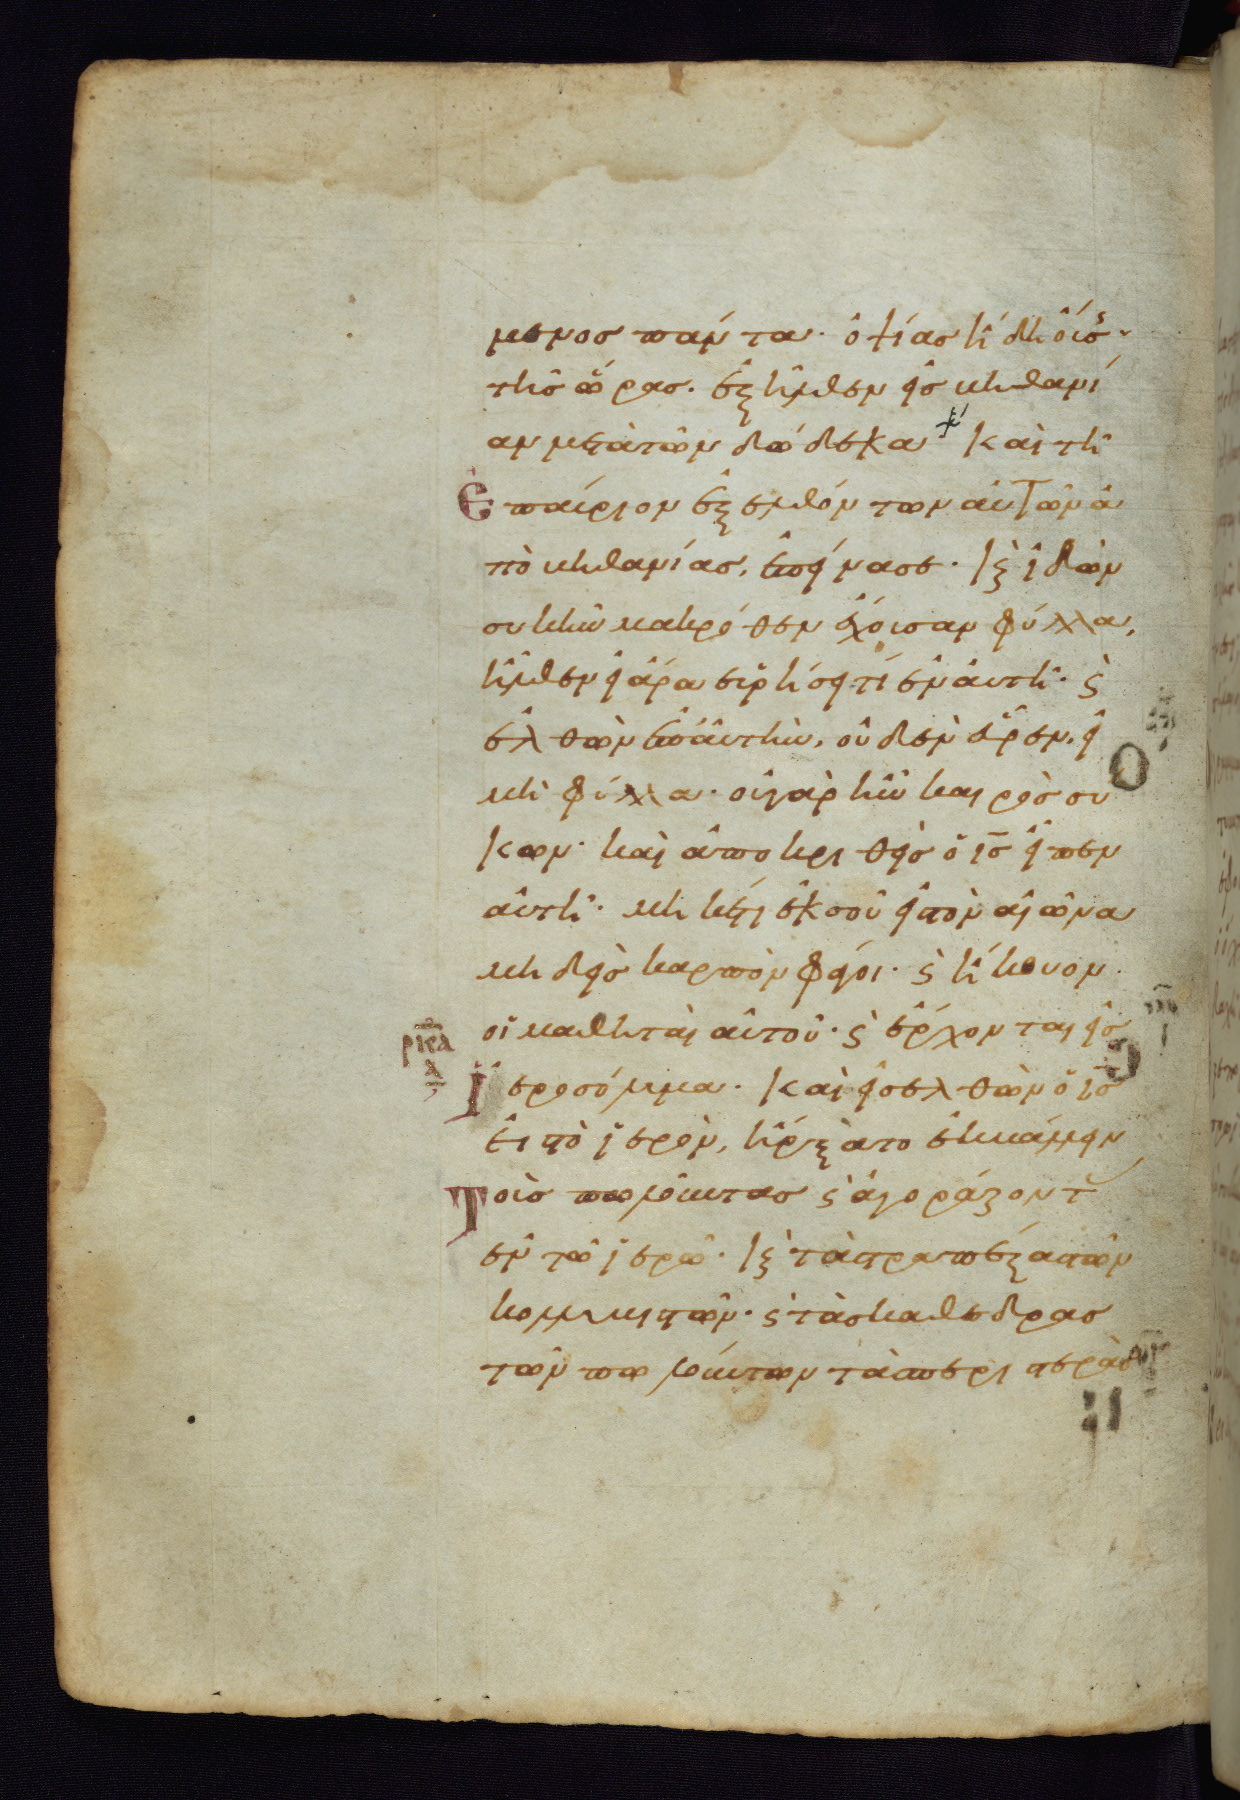 μενος πάντα· ὀψίας ἤδη οὔσ(ης)
τῆς ὥρας. ἐξῆλθεν εἰς βηθανί
αν μετὰ τῶν δώδεκα καὶ τῇ
ἐπαύριον ἐξελθόντων αὐτῶν ἀ
πὸ βηθανίας, ἐπείνασε· κ(αὶ) ἰδὼν
συκῆν μακρόθεν ἔχουσαν φύλλα,
ἦλθεν εἰ ἄρα εὑρήσει τί ἐν αὐτῇ· κ(αὶ)
ἐλθὼν ἐπ' αὐτὴν, οὐδὲν εὗρεν. εἰ
μὴ φύλλα· οὐ γὰρ ἦν καιρὸς σύ
κων· καὶ ἀποκριθεὶς ὁ ι̅ς̅ εἶπεν
αὐτῇ· μηκέτι ἐκ σοῦ εἰς τὸν αἰῶνα
μηδεὶς καρπὸν φάγοι· κ(αὶ) ἤκουον
οἱ μαθηταὶ αὐτοῦ· κ(αὶ) ἔρχονται εἰς
ἱεροσόλυμα. καὶ εἰσελθὼν ὁ ι̅ς̅
εἰς τὸ ἱερὸν, ἤρξατο ἐκβάλλειν
τοὺς πωλοῦντας κ(αὶ) ἀγοράζοντ(ας)
ἐν τῷ ἱερῷ· κ(αὶ) τὰς τραπέζας τῶν
κολλυβιστῶν· κ(αὶ) τὰς καθέδρας
τῶν πωλούντων τὰς περιστερὰς